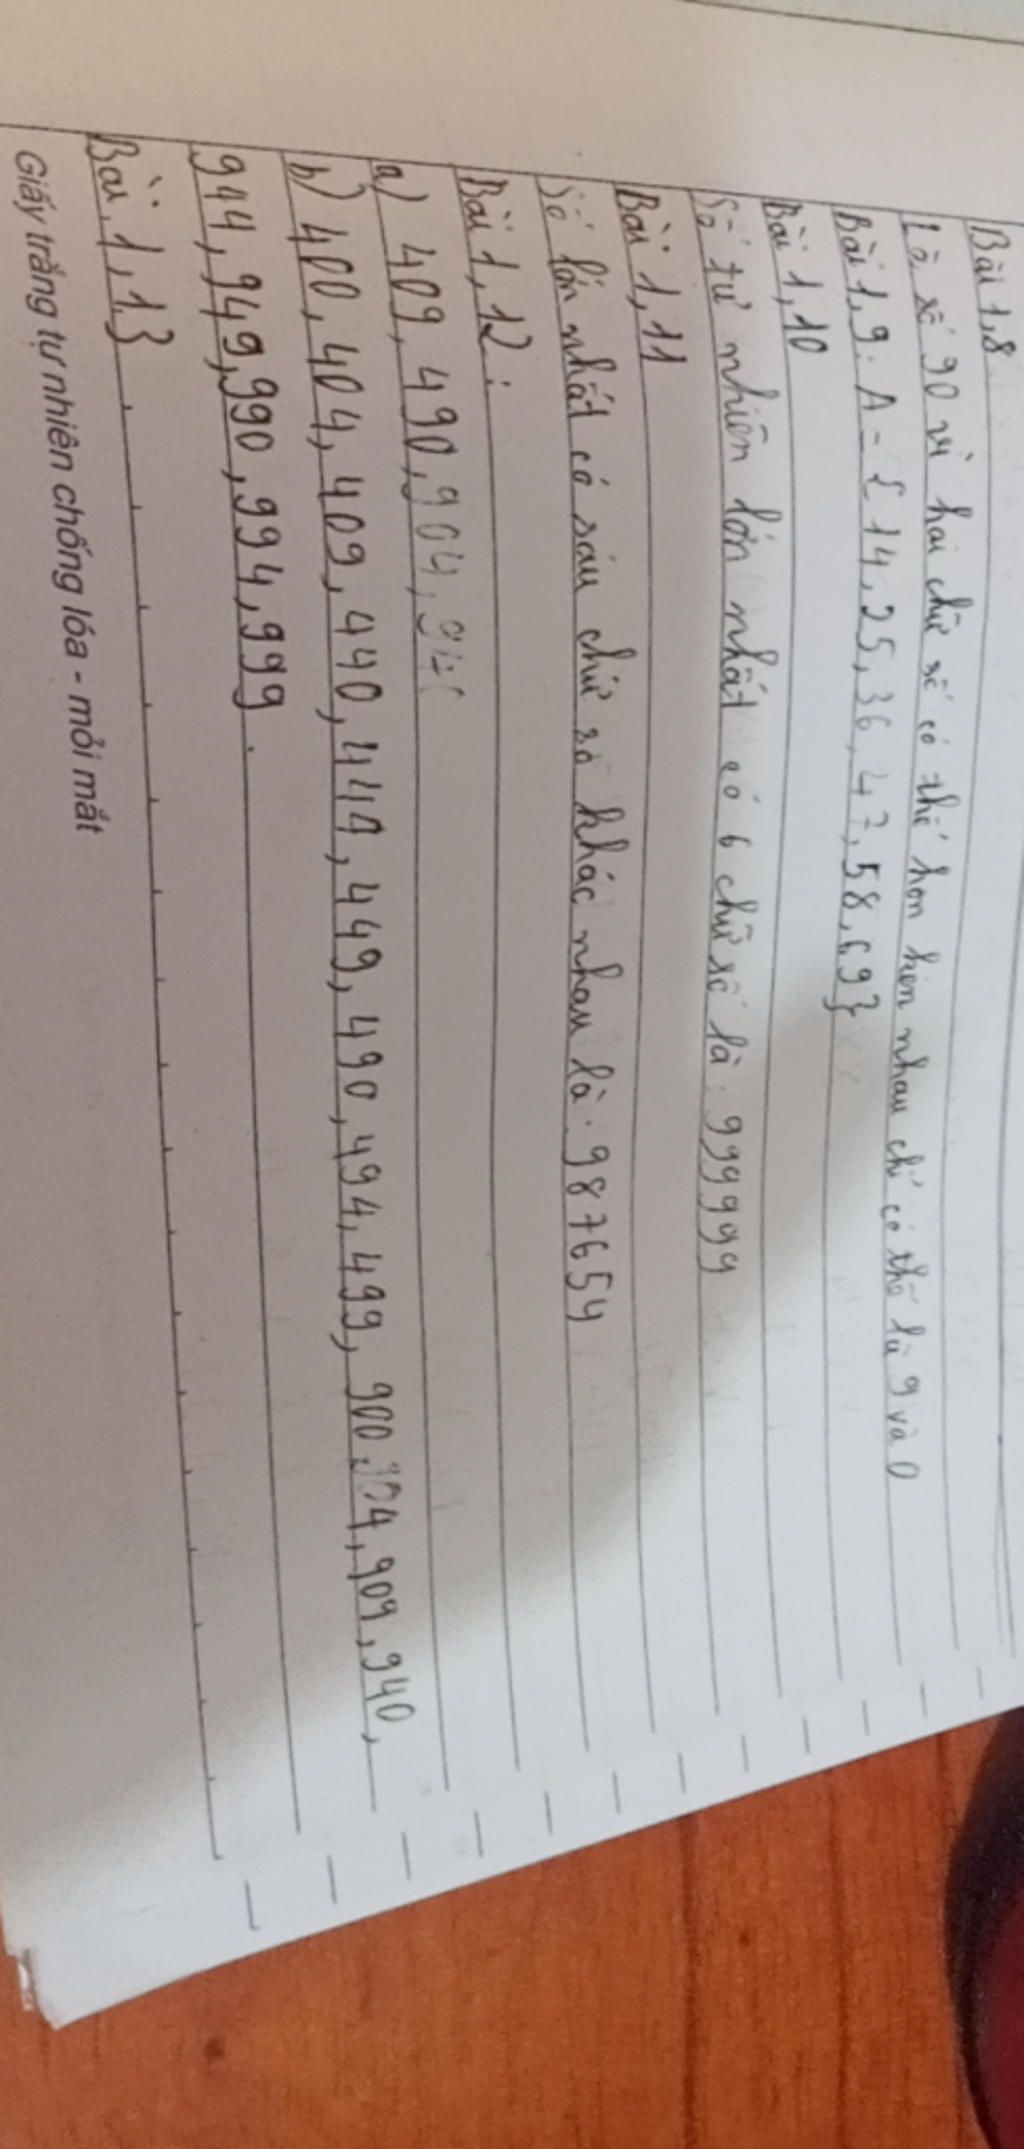 Bài 1,8
Là số 90 vì hai chữ số có thể hơn kém nhau chỉ có thể là 9 và 0
Bài 1,9: A = {14,25,36,47,58,69}
Bài 1,10
Số tự nhiên lớn nhất có 6 chữ số là: 999999
Bài 1,11
Số lớn nhất có sáu chữ số khác nhau là: 987654
Bài 1,12:
a) 409,490,904,940
b) 400,404,409,440,444,449,490,494,499,900,904,909,940,
944,949,990,994,999.
Bài 1,13
Giấy trắng tự nhiên chống lóa - mỏi mắt